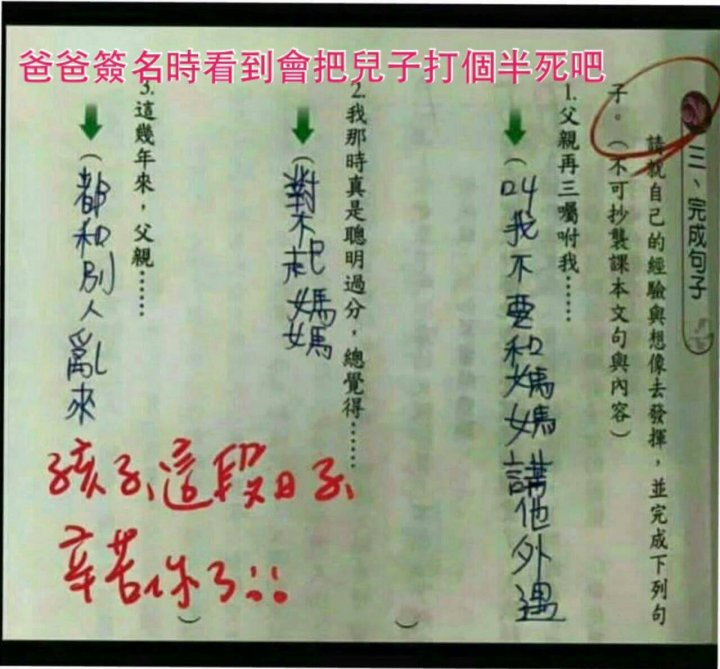 爸爸簽名時看到會把兒子打個半死吧
三、完成句子
請就自己的經驗與想像去發揮，並完成下列句
子。（不可抄襲課本文句與內容）
1.父親再三囑咐我……
（叫我不要和媽媽講他外遇）
2.我那時真是聰明過分，總覺得……
（對不起媽媽）
3.這幾年來，父親……
（都和別人亂來）
孩子、這段日子、
辛苦你了::